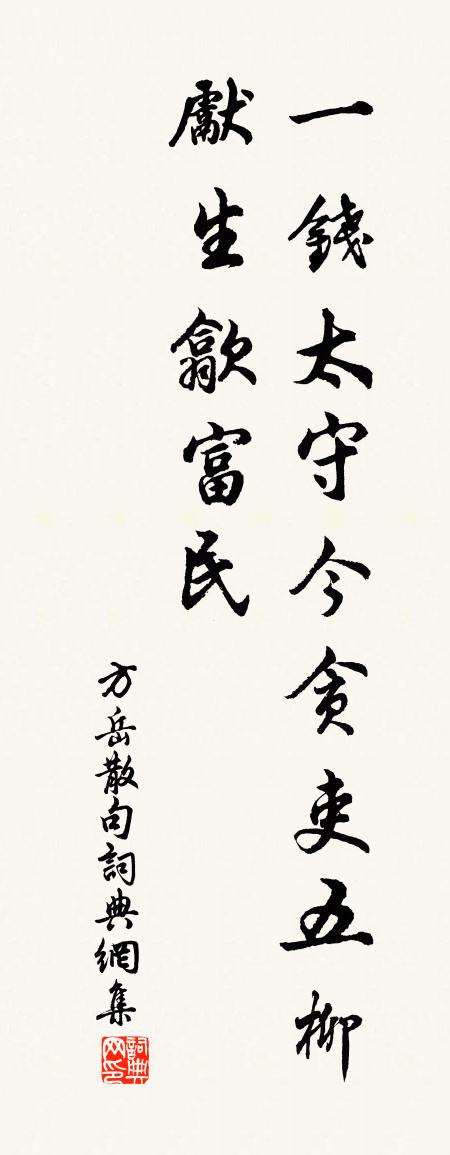 一錢太守今貪吏五柳
獻生歙富民
方岳散句詞典網集
詞典
网印